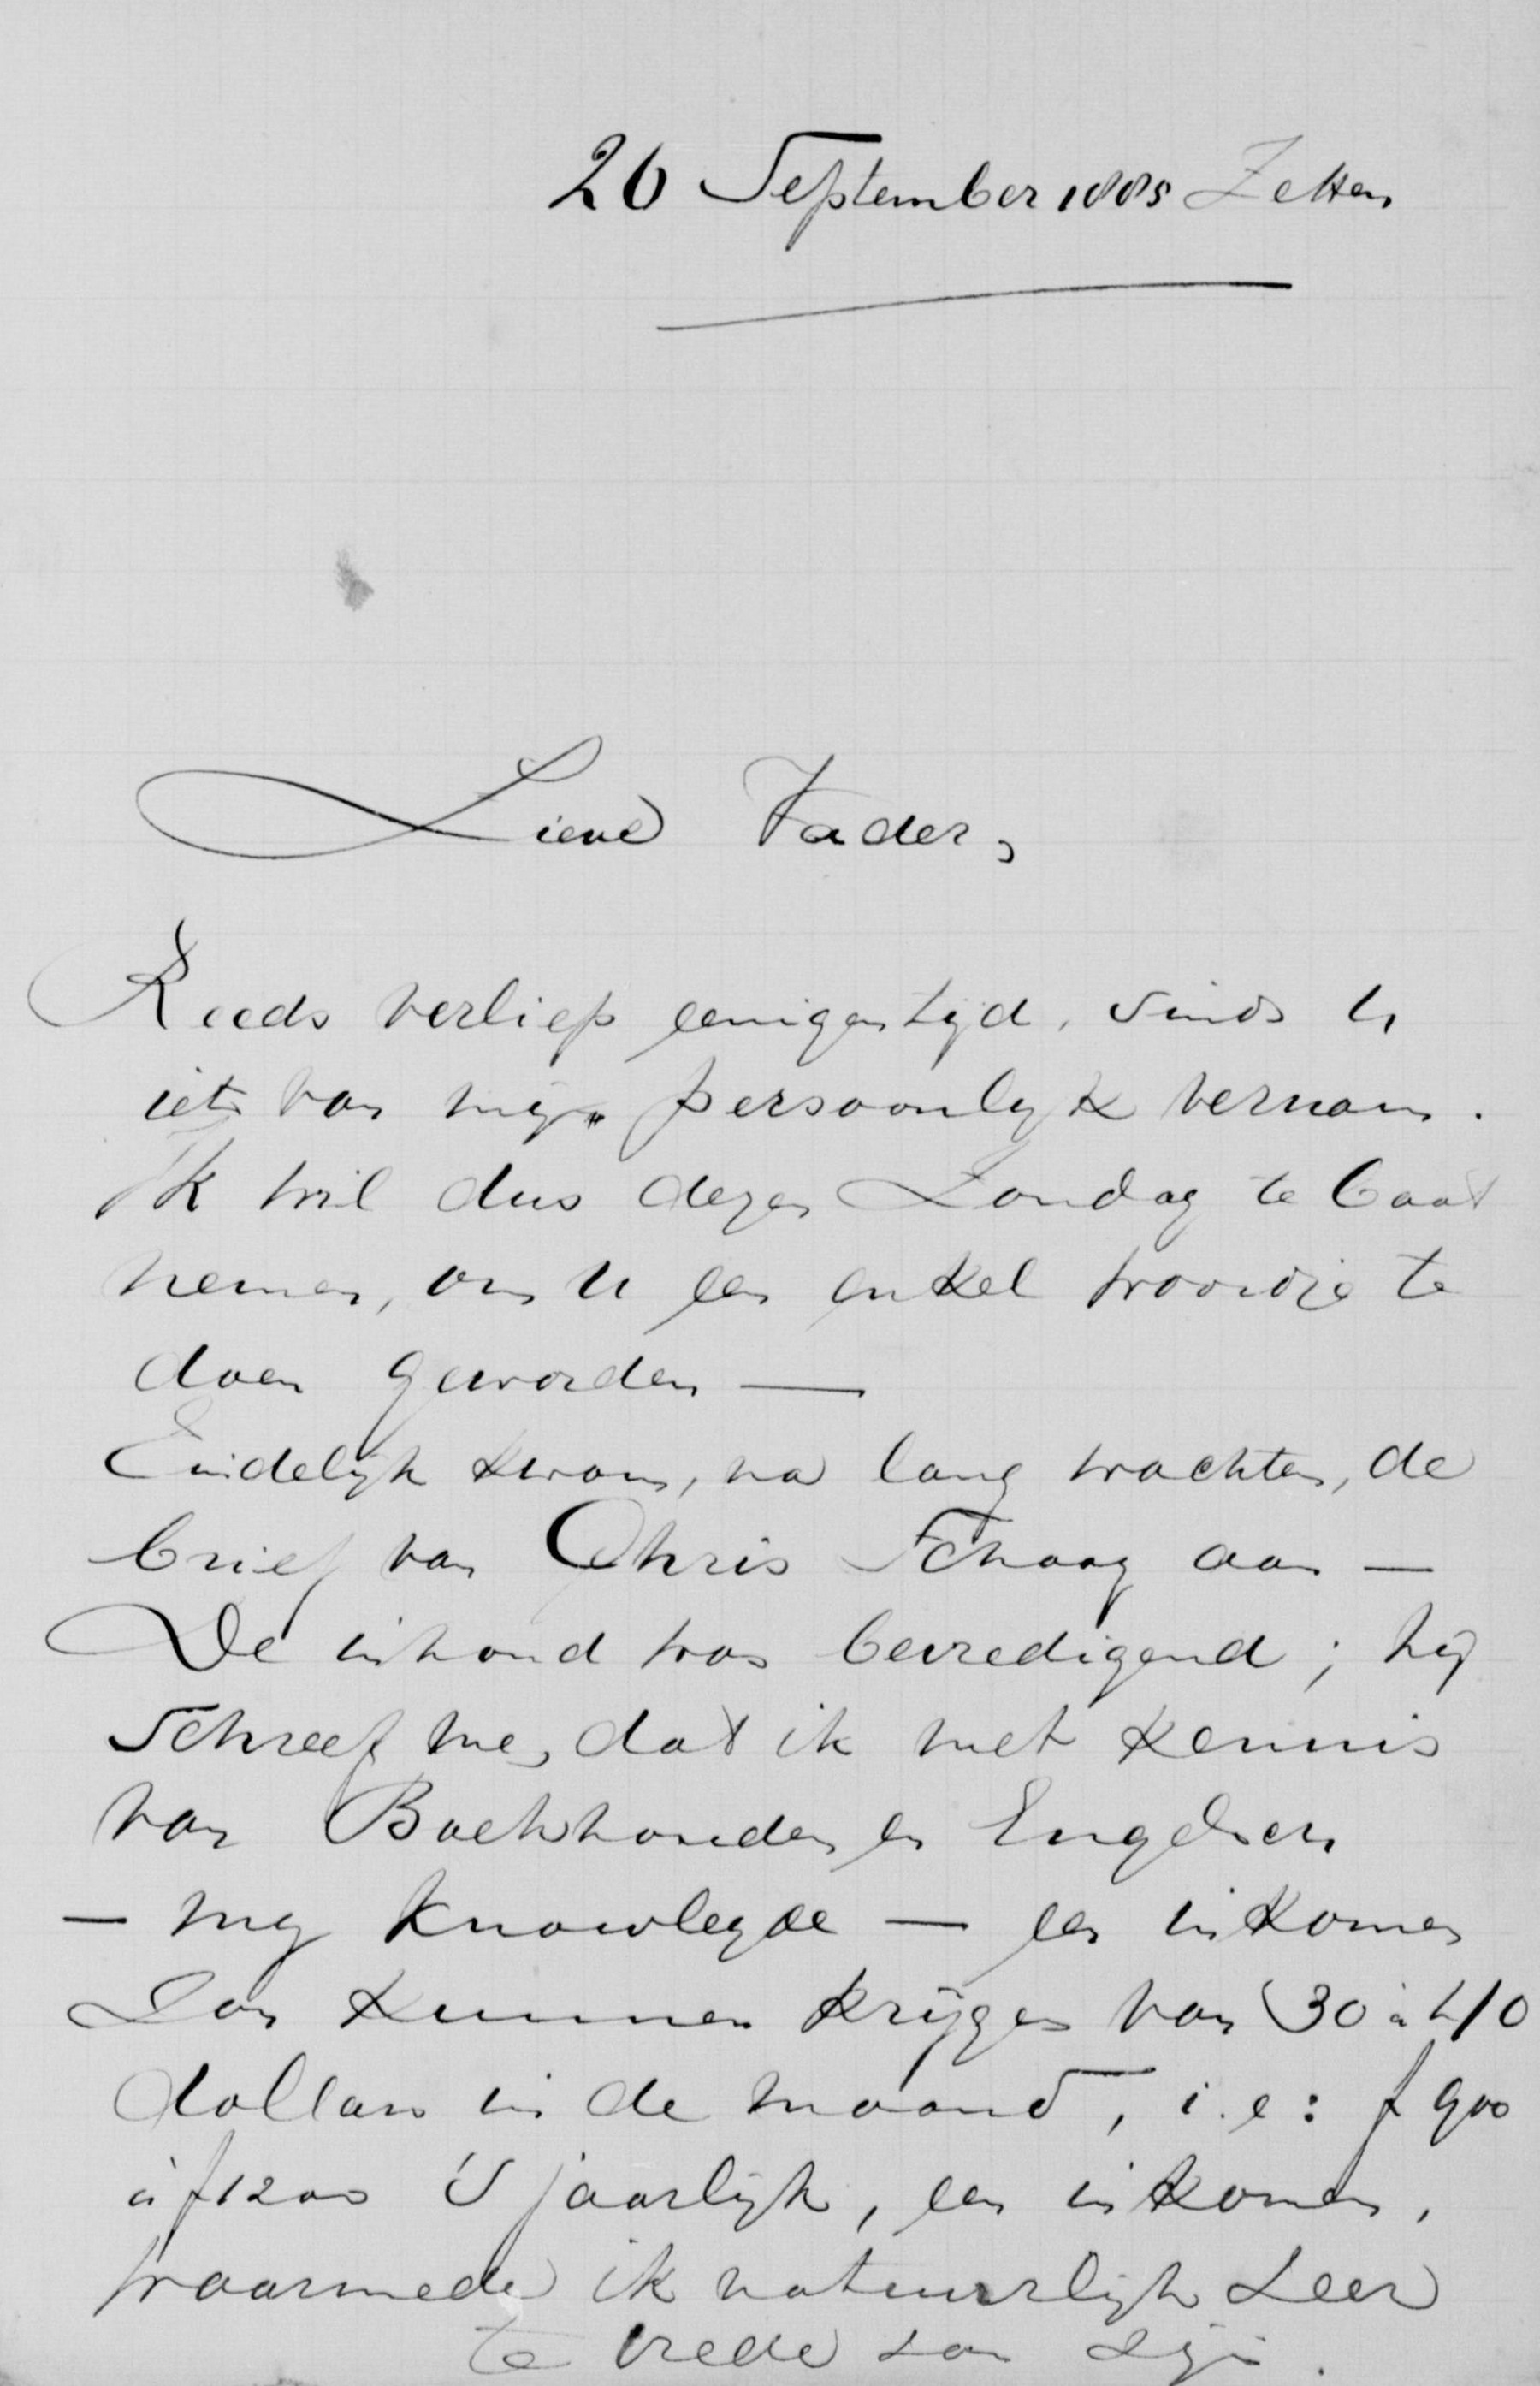 26 September 1885 Zetten
Lieve Vader,
Reeds verliep eenigen tijd, sinds U
iets van mij persoonlijk vernam.
Ik wil dus dezen Zondag te baat
nemen, om U een enkel woordje te
doen geworden —
Eindelijk kwam, na lang wachten, de
brief van Chris Schaag aan —
De inhoud was bevredigend; hij
schreef me, dat ik met kennis
van Boekhouden en Engelsch
— my knowlegde — een inkomen
zou kunnen krijgen van 30 à 40
dollars in de maand, i.e: f 900
à f 1200 's jaarlijks, een inkomen,
waarmede ik natuurlijk zeer
te vrede zou zijn.